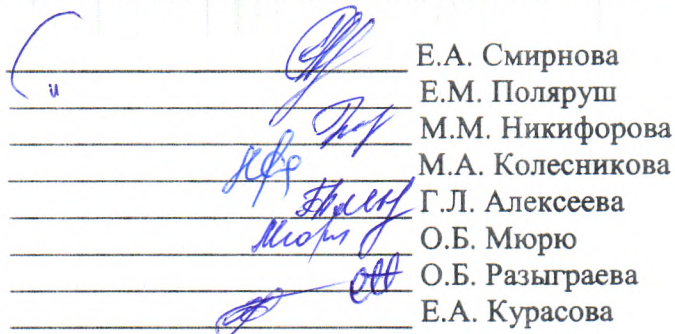 Е.А. Смирнова
Е.М. Поляруш
М.М. Никифорова
М.А. Колесникова
Г.Л. Алексеева
О.Б. Мюрю
О.Б. Разыграева
Е.А. Курасова